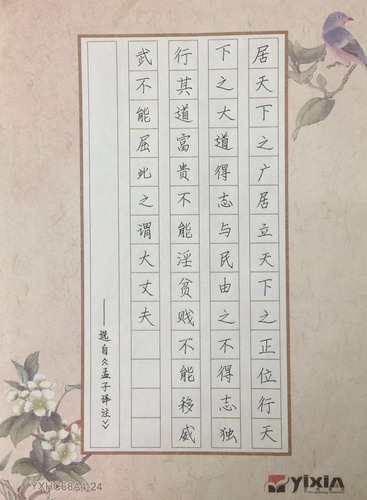 居天下之广居立天下之正位行天
下之大道得志与民由之不得志独
行其道富贵不能淫贫贱不能移威
武不能屈此之谓大丈夫
——选自《孟子译注》
YXHC68A4-24
yixin